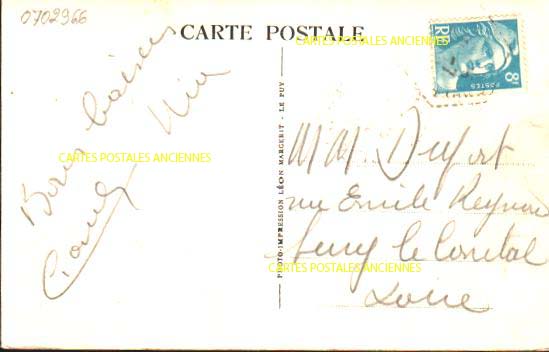 0702966
CARTE POSTALE
CARTES POSTALES ANCIENNES
RF
8F
POSTES
Bons baisers
CARTES POSTALES ANCIENNES
PHOTO-IMPRESSION LÉON MARGERIT - LE PUY
M M. Dufort
rue Emile Reymond
le
CARTES POSTALES ANCIENNES
Loire